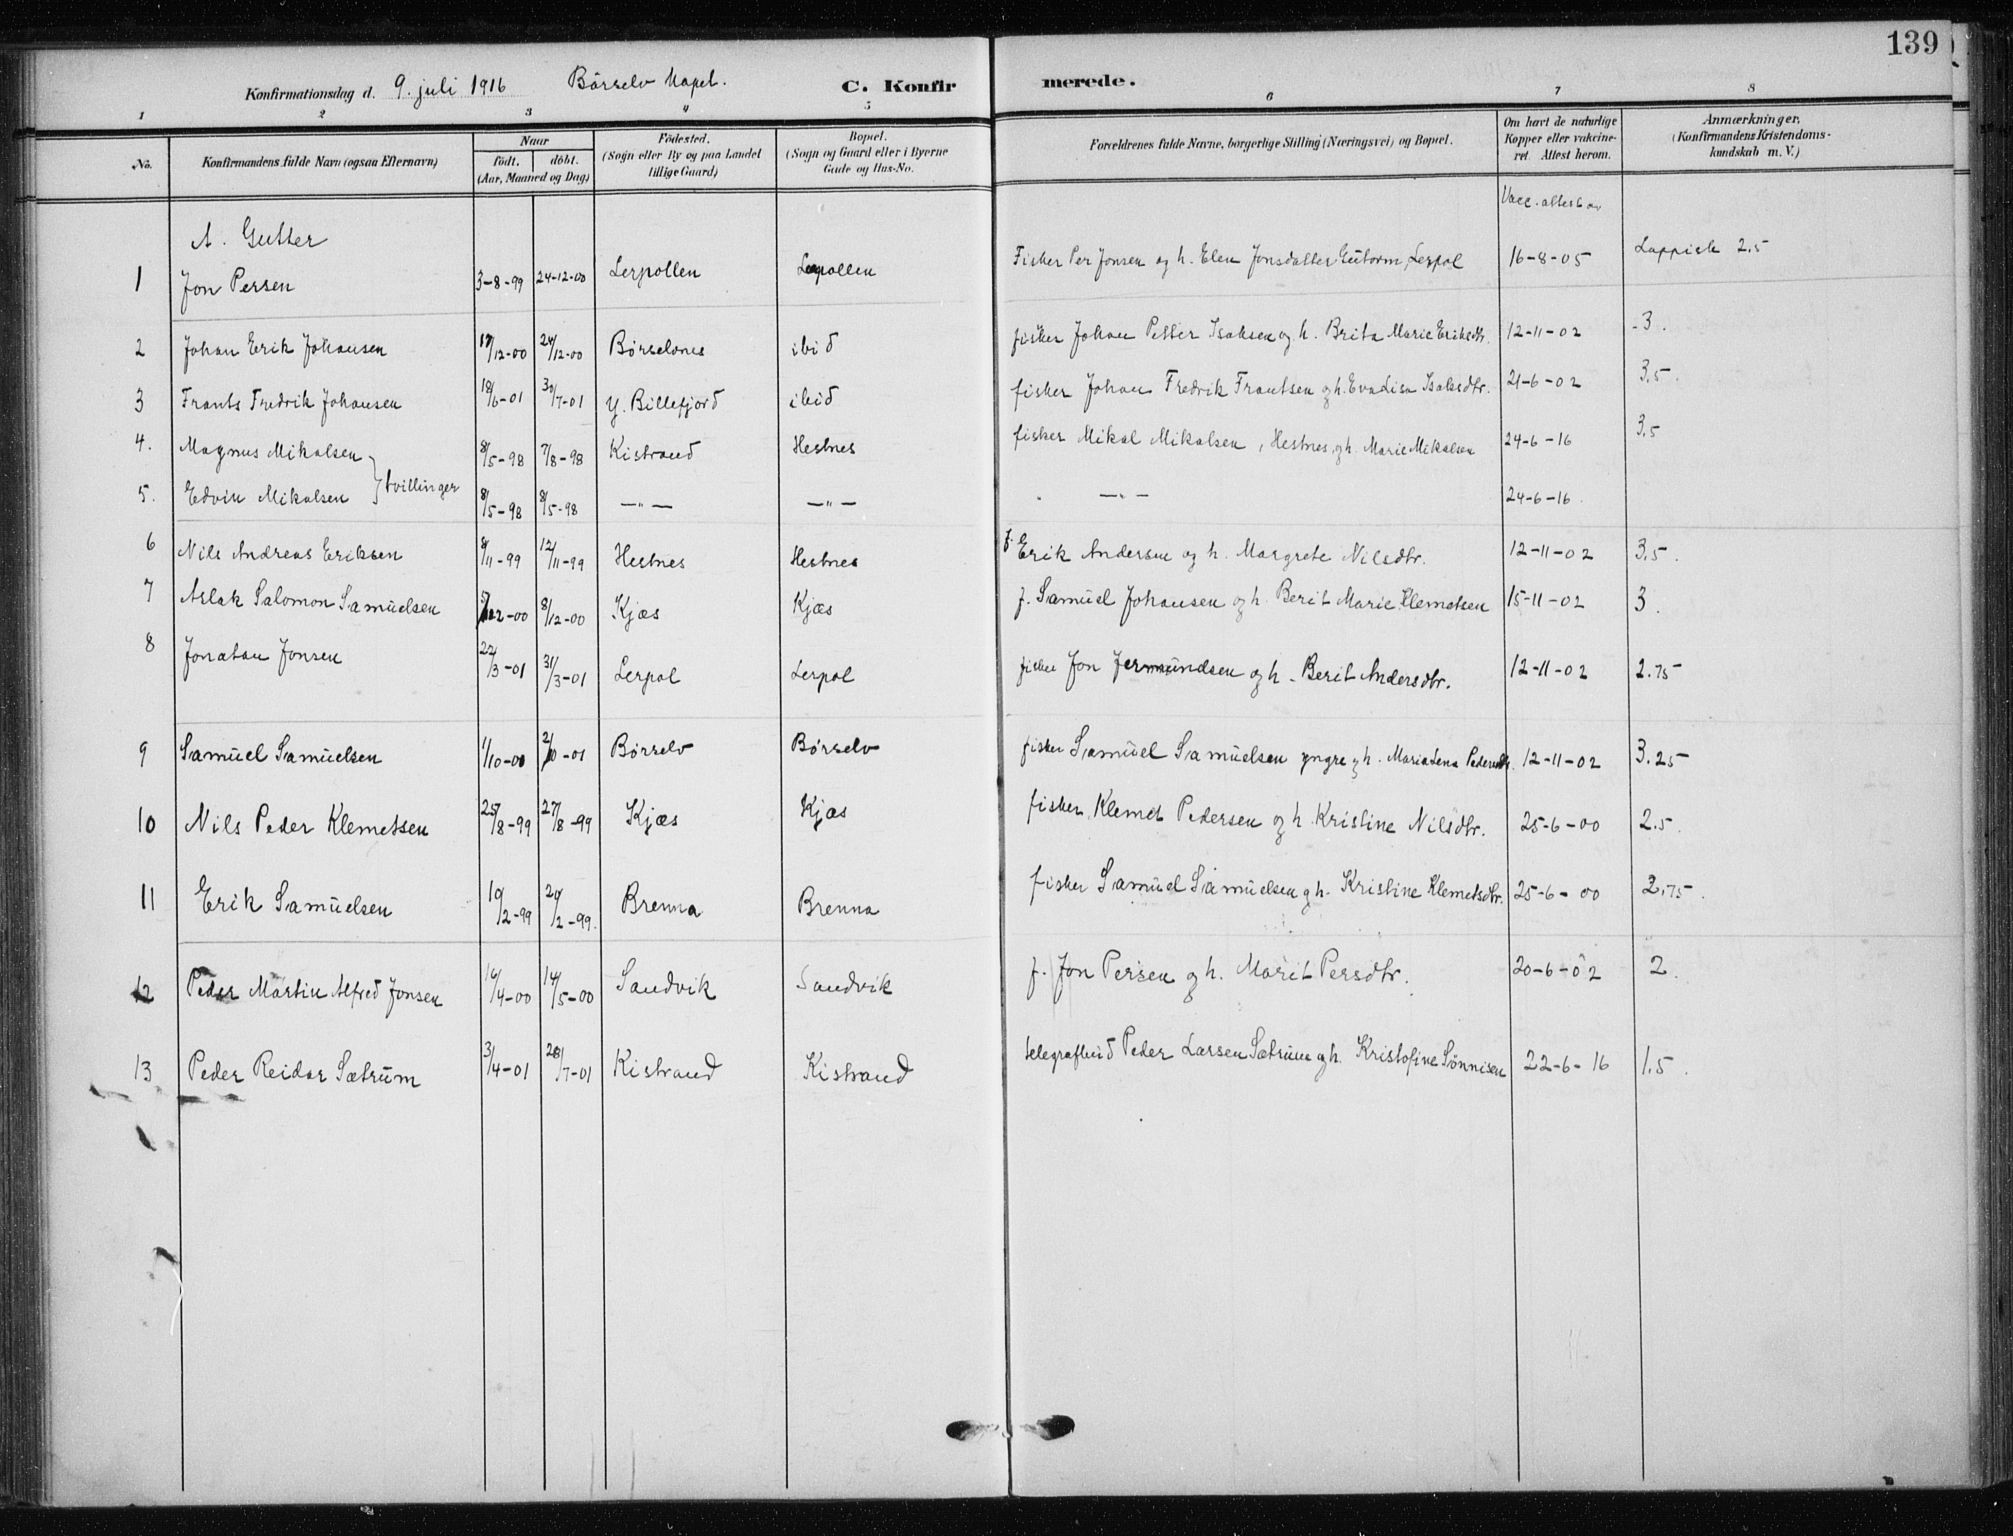 139
Konfirmationsdag d. 9. juli 1916 Børselv Kapel. C. Konfirmerede.
1 2 3 4 5 6 7 8
No. Konfirmandens fulde Navn (ogsaa Efternavn) Naar födt. döbt. (Aar, Maaned og Dag) Födested. (Sogn eller By og paa Landet tillige Gaard) Bopæl. (Sogn og Gaard eller i Byerne Gade og Hus-No. Forældrenes fulde Navne, borgerlige Stilling (Næringsvei) og Bopæl. Om havt de naturlige Kopper eller vakcineret. Attest herom. Anmærkninger. (Konfirmandens Kristendomskundskab m. V.)
Vacc. attest av
A. Gutter
1 Jon Persen 3-8-99 24-12-00 Lerpollen Lerpollen Fisker Per Jonsen og h. Elen Jonsdatter Gutorm, Lerpol 16-8-05 Lappisk 2.5
2 Johan Erik Johansen 17/12-00 24/12-00 Børselvnes ibid fisker Johan Petter Isaksen og h. Brita Marie Eriksdtr. 12-11-02 3.
3 Frants Fredrik Johansen 18/6-01 30/7-01 Y. Billefjord ibid fisker Johan Fredrik Frantsen og h. Eva Lisa Isaksdtr. 21-6-02 3.5.
4. Magnus Mikalsen } tvillinger 8/5-98 7/8-98 Kistrand Hestnes fisker Mikal Mikalsen, Hestnes, og h. Marie Mikalsen 24-6-16 3.5
5. Edvin Mikalsen 8/5-98 8/5-98 —"— —"— —"— 24-6-16.
6 Nils Andreas Eriksen 8/11-99 12/11-99 Hestnes Hestnes f. Erik Andersen og h. Margrete Nilsdtr. 12-11-02 3.5.
7 Aslak Salomon Samuelsen 5/12-00 8/12-00 Kjæs Kjæs f. Samuel Johansen og h. Berit Marie Klemetsen 15-11-02 3.
8 Jonatan Jonsen 22/3-01 31/3-01 Lerpol Lerpol fisker Jon Jermundsen og h. Berit Andersdtr. 12-11-02 2.75
9 Samuel Samuelsen 1/10-00 2/10-01 Børselv Børselv fisker Samuel Samuelsen yngre og h. Maria Lena Pedersdtr. 12-11-02 3.25
10 Nils Peder Klemetsen 25/8-99 27/8-99 Kjæs Kjæs fisker Klemet Pedersen og h. Kristine Nilsdtr. 25-6-00 2.5.
11 Erik Samuelsen 10/2-99 20/2-99. Brenna Brenna fisker Samuel Samuelsen og h. Kristine Klemetsdtr. 25-6-00 2.75.
12 Peder Martin Alfred Jonsen 16/4-00 14/5-00 Sandvik Sandvik f. Jon Persen og h. Marit Persdtr. 20-6-02 2.
13 Peder Reidar Sætrum 3/4-01 28/7-01 Kistrand Kistrand Peder Larsen Sætrum og h. Kristofine Sønnisen 22-6-16 1.5.